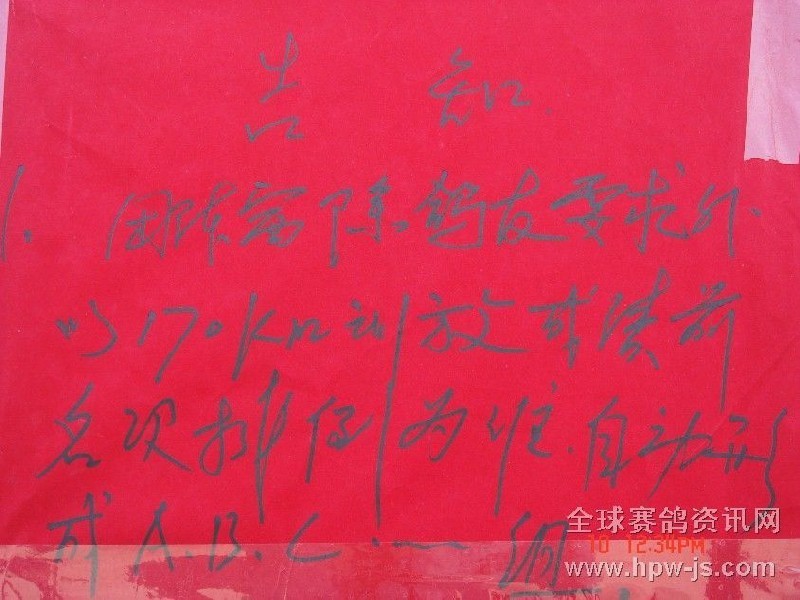 告 知
1. 因 除 鸽友要求外
以170Km训放成绩前
名次排 为准.自动形
成A.B.C. 组.
全球赛鸽资讯网
10 12:34PM
www.hpw-js.com